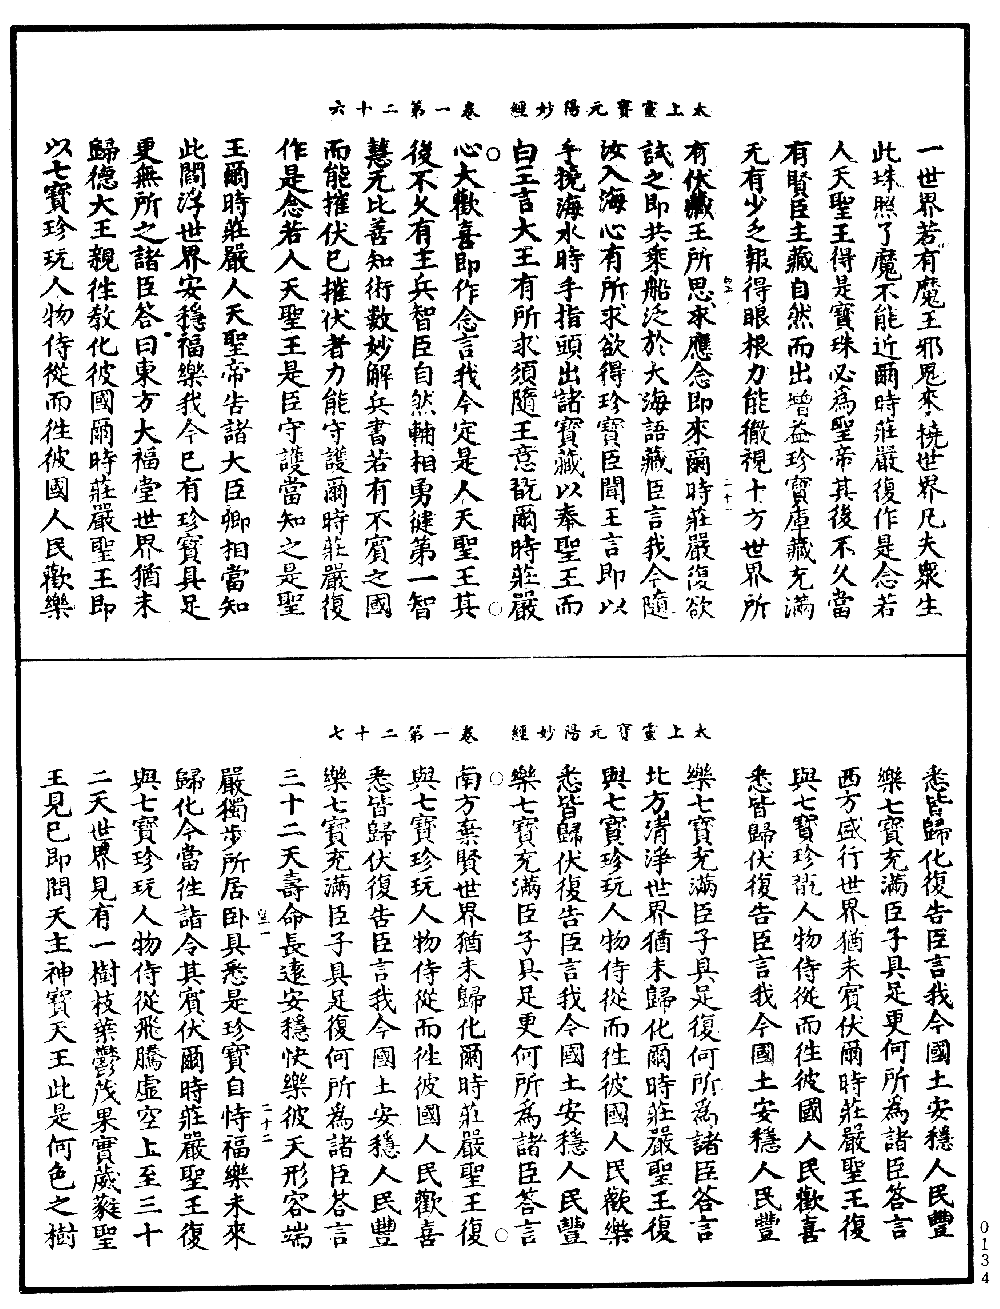 太上靈寳元陽妙經　卷一第二十六
一世界若有魔王邪鬼來撓世界凡夫衆生
此珠照了魔不能近爾時莊嚴復作是念若
人天聖王得是寶珠必為聖帝其後不久當
有賢臣主藏自然而出增益珍寶庫藏充滿
无有少乏報得眼根力能徹視十方世界所
有伏藏王所思求應念即來爾時莊嚴復欲
試之即共乘船泛於大海語藏臣言我今隨
汝入海心有所求欲得珍寶臣聞王言即以
手撓海水時手指頭出諸寶藏以奉聖王而
白王言大王有所求須隨王意既爾時莊嚴
心大歡喜即作念言我今定是人天聖王其
後不久有主兵智臣自然輔相勇健第一智
慧无比善知術數妙解兵書若有不賓之國
而能摧伏已摧伏者力能守護爾時莊嚴復
作是念若人天聖王是臣守護當知之是聖
王爾時莊嚴人天聖帝告諸大臣卿相當知
此閻浮世界安穩福樂我今已有珍寶具足
更無所之諸臣荅曰東方大福堂世界猶未
歸德大王親徃教化彼國爾時莊嚴聖王即
以七寶珍玩人物侍從而徃彼國人民歡樂
太上靈寳元陽妙經　卷一第二十七
悉皆歸化復告臣言我今國土安穩人民豐
樂七寶充滿臣子具足更何所為諸臣荅言
西方盛行世界猶未賓伏爾時莊嚴聖王復
與七寶珍翫人物侍從而徃彼國人民歡喜
悉皆歸伏復告臣言我今國土安穩人民豐
樂七寶充滿臣子具足復何所為諸臣荅言
北方清淨世界猶未歸化爾時莊嚴聖王復
與七寶珍玩人物侍從而徃彼國人民歡樂
悉皆歸伏復告臣言我今國土安穩人民豐
樂七寶充滿臣子具足更何所為諸臣荅言
南方棄賢世界猶未歸化爾時莊嚴聖王復
與七寶珍玩人物侍從而徃彼國人民歡喜
悉皆歸伏復告臣言我今國土安穩人民豐
樂七寶充滿臣子具足復何所為諸臣荅言
三十二天壽命長遠安穩快樂彼天形容端
嚴獨步所居卧具悉是珍寶自恃福樂未來
歸化今當徃詣令其賓伏爾時莊嚴聖王復
與七寶珍玩人物侍從飛騰虛空上至三十
二天世界見有一樹枝葉鬱茂果實葳蕤聖
王見已即問天主神寶天王此是何色之樹
二十一
二十二
0134